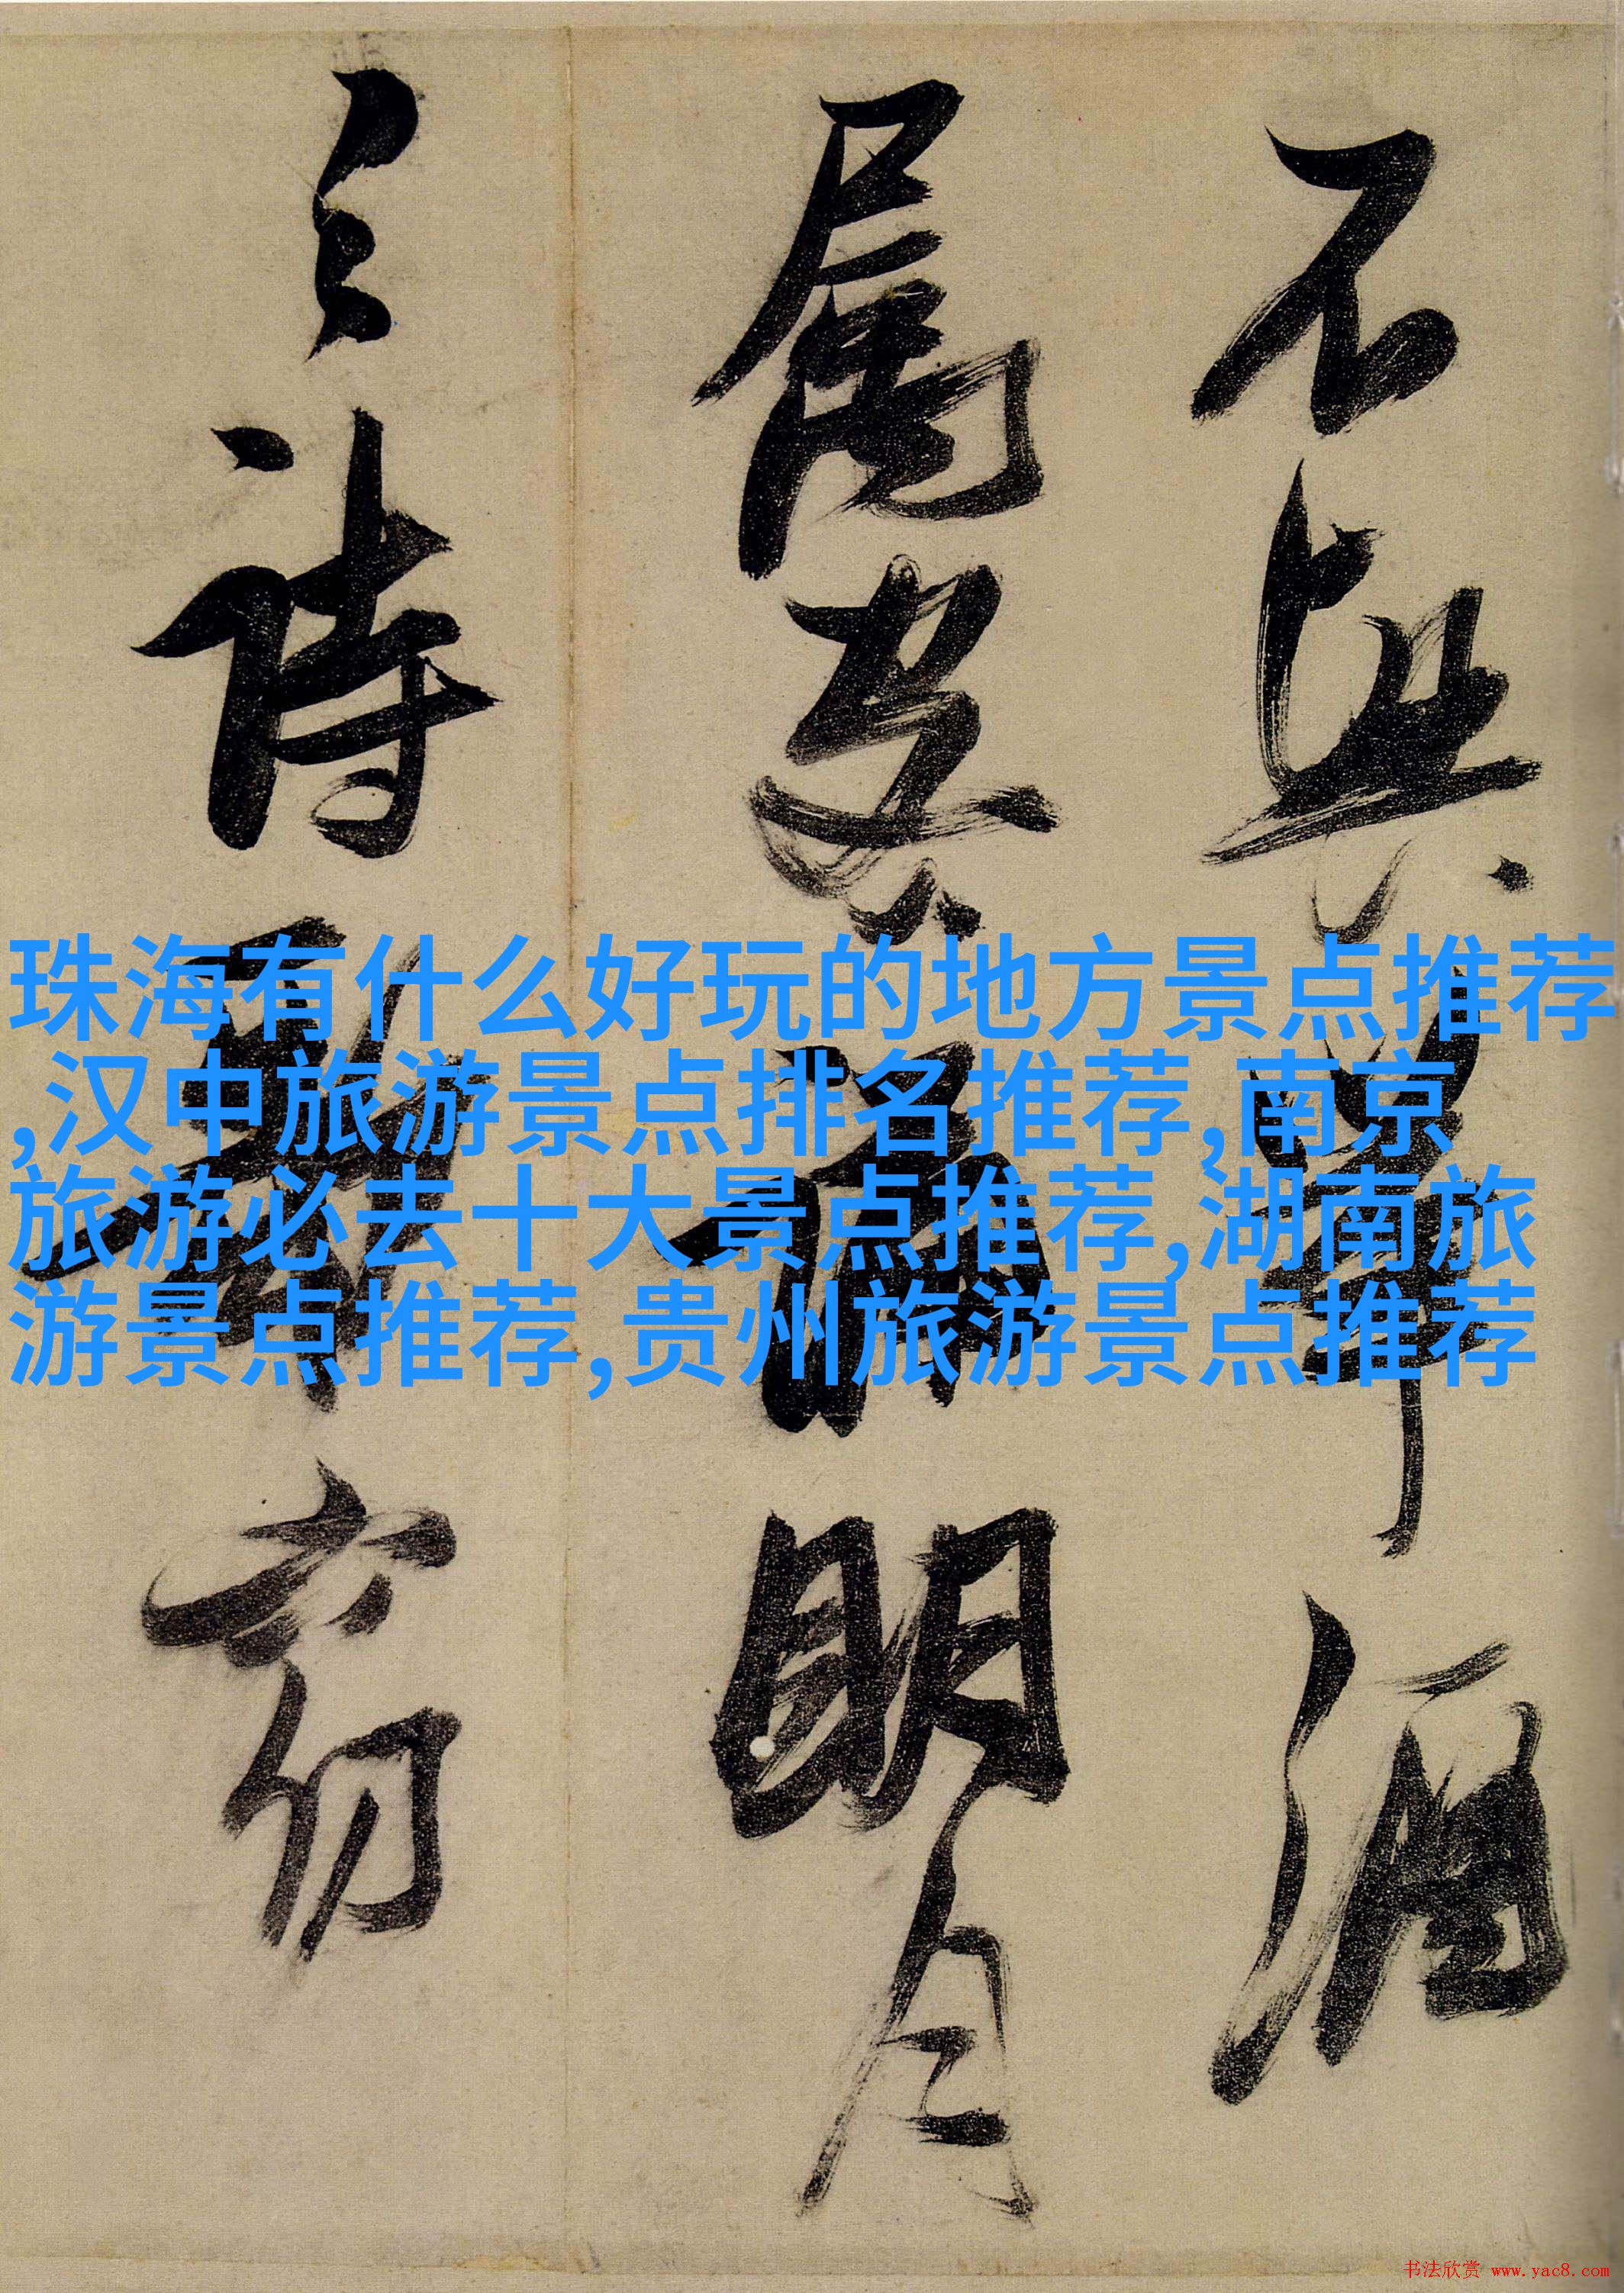 不与举酒
属客诵明月
之诗歌窈
珠海有什么好玩的地方景点推荐
,汉中旅游景点排名推荐,南京
旅游必去十大景点推荐,湖南旅
游景点推荐,贵州旅游景点推荐
书法欣赏 www.yac8.com